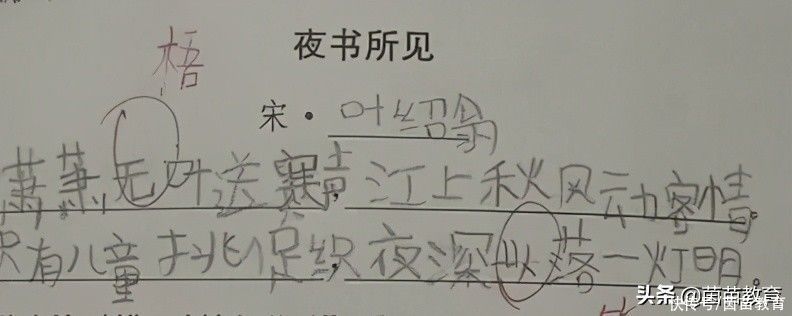 梧
夜书所见
宋·叶绍翁
萧萧无叶送赛声,江上秋风动客情。
只有儿童挑促织,夜深从落一灯明。
头条 @茵茵教育
快传号/茵茵教育